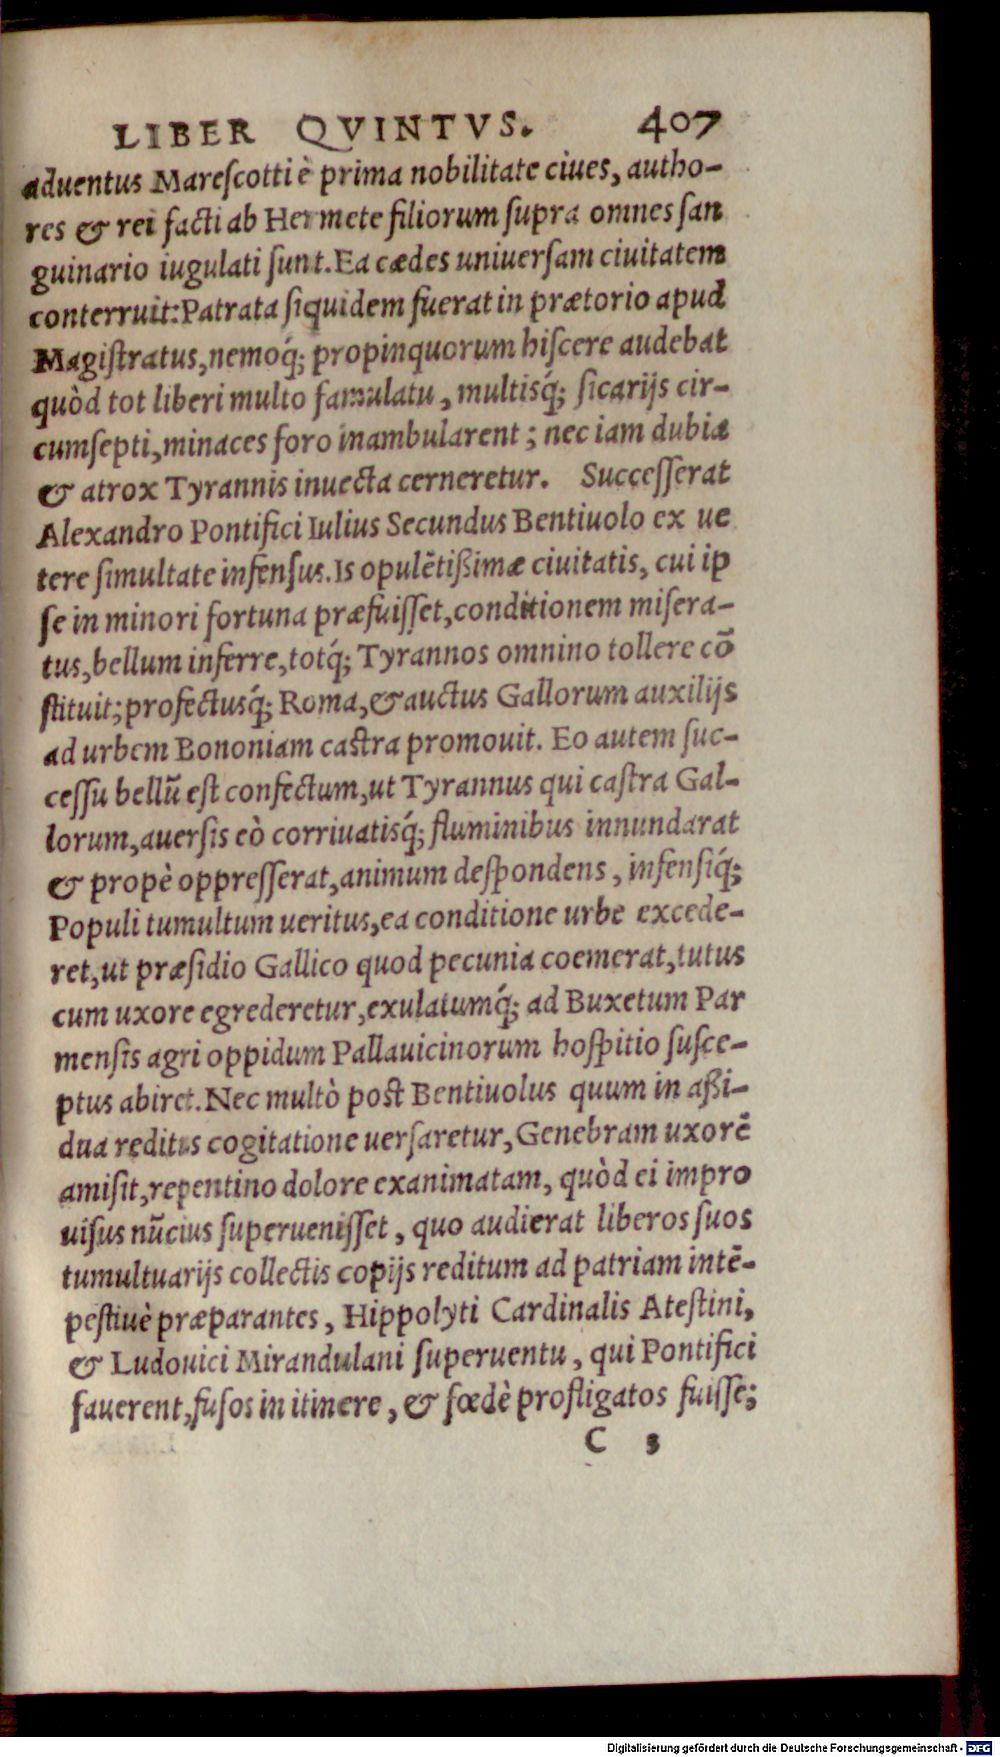 LIBER QVINTVS. 407
aduentus Mareſcotti è prima nobilitate ciues, autho-
res & rei facti ab Hermete filiorum ſupra omnes ſan
guinario iugulati ſunt. Ea cædes uniuerſam ciuitatem
conterruit: Patrata ſiquidem fuerat in prætorio apud
Magiſtratus, nemoq́; propinquorum hiſcere audebat
quòd tot liberi multo famulatu, multisq́; ſicarijs cir-
cumſepti, minaces foro inambularent; nec iam dubia
& atrox Tyrannis inuecta cerneretur. Succeſſerat
Alexandro Pontifici Iulius Secundus Bentiuolo ex ue
tere ſimultate infenſus. Is opulētißimæ ciuitatis, cui ip
ſe in minori fortuna præfuiſſet, conditionem miſera-
tus, bellum inferre, totq́; Tyrannos omnino tollere cō
ſtituit; profectusq́; Roma, & auctus Gallorum auxilijs
ad urbem Bononiam caſtra promouit. Eo autem ſuc-
ceſſu bellū eſt confectum, ut Tyrannus qui caſtra Gal-
lorum, auerſis eò corriuatisq́; fluminibus innundarat
& propè oppreſſerat, animum deſpondens, infenſiq́;
Populi tumultum ueritus, ea conditione urbe excede-
ret, ut præſidio Gallico quod pecunia coemerat, tutus
cum uxore egrederetur, exulatumq́; ad Buxetum Par
menſis agri oppidum Pallauicinorum hoſpitio ſuſce-
ptus abiret. Nec multò poſt Bentiuolus quum in aßi-
dua reditus cogitatione uerſaretur, Genebram uxorē
amiſit, repentino dolore exanimatam, quòd ei impro
uiſus nūcius ſuperueniſſet, quo audierat liberos ſuos
tumultuarijs collectis copijs reditum ad patriam intē-
peſtiuè præparantes, Hippolyti Cardinalis Ateſtini,
& Ludouici Mirandulani ſuperuentu, qui Pontifici
fauerent, fuſos in itinere, & fœdè profligatos fuiſſe;
C 3
Digitalisierung gefördert durch die Deutsche Forschungsgemeinschaft - DFG